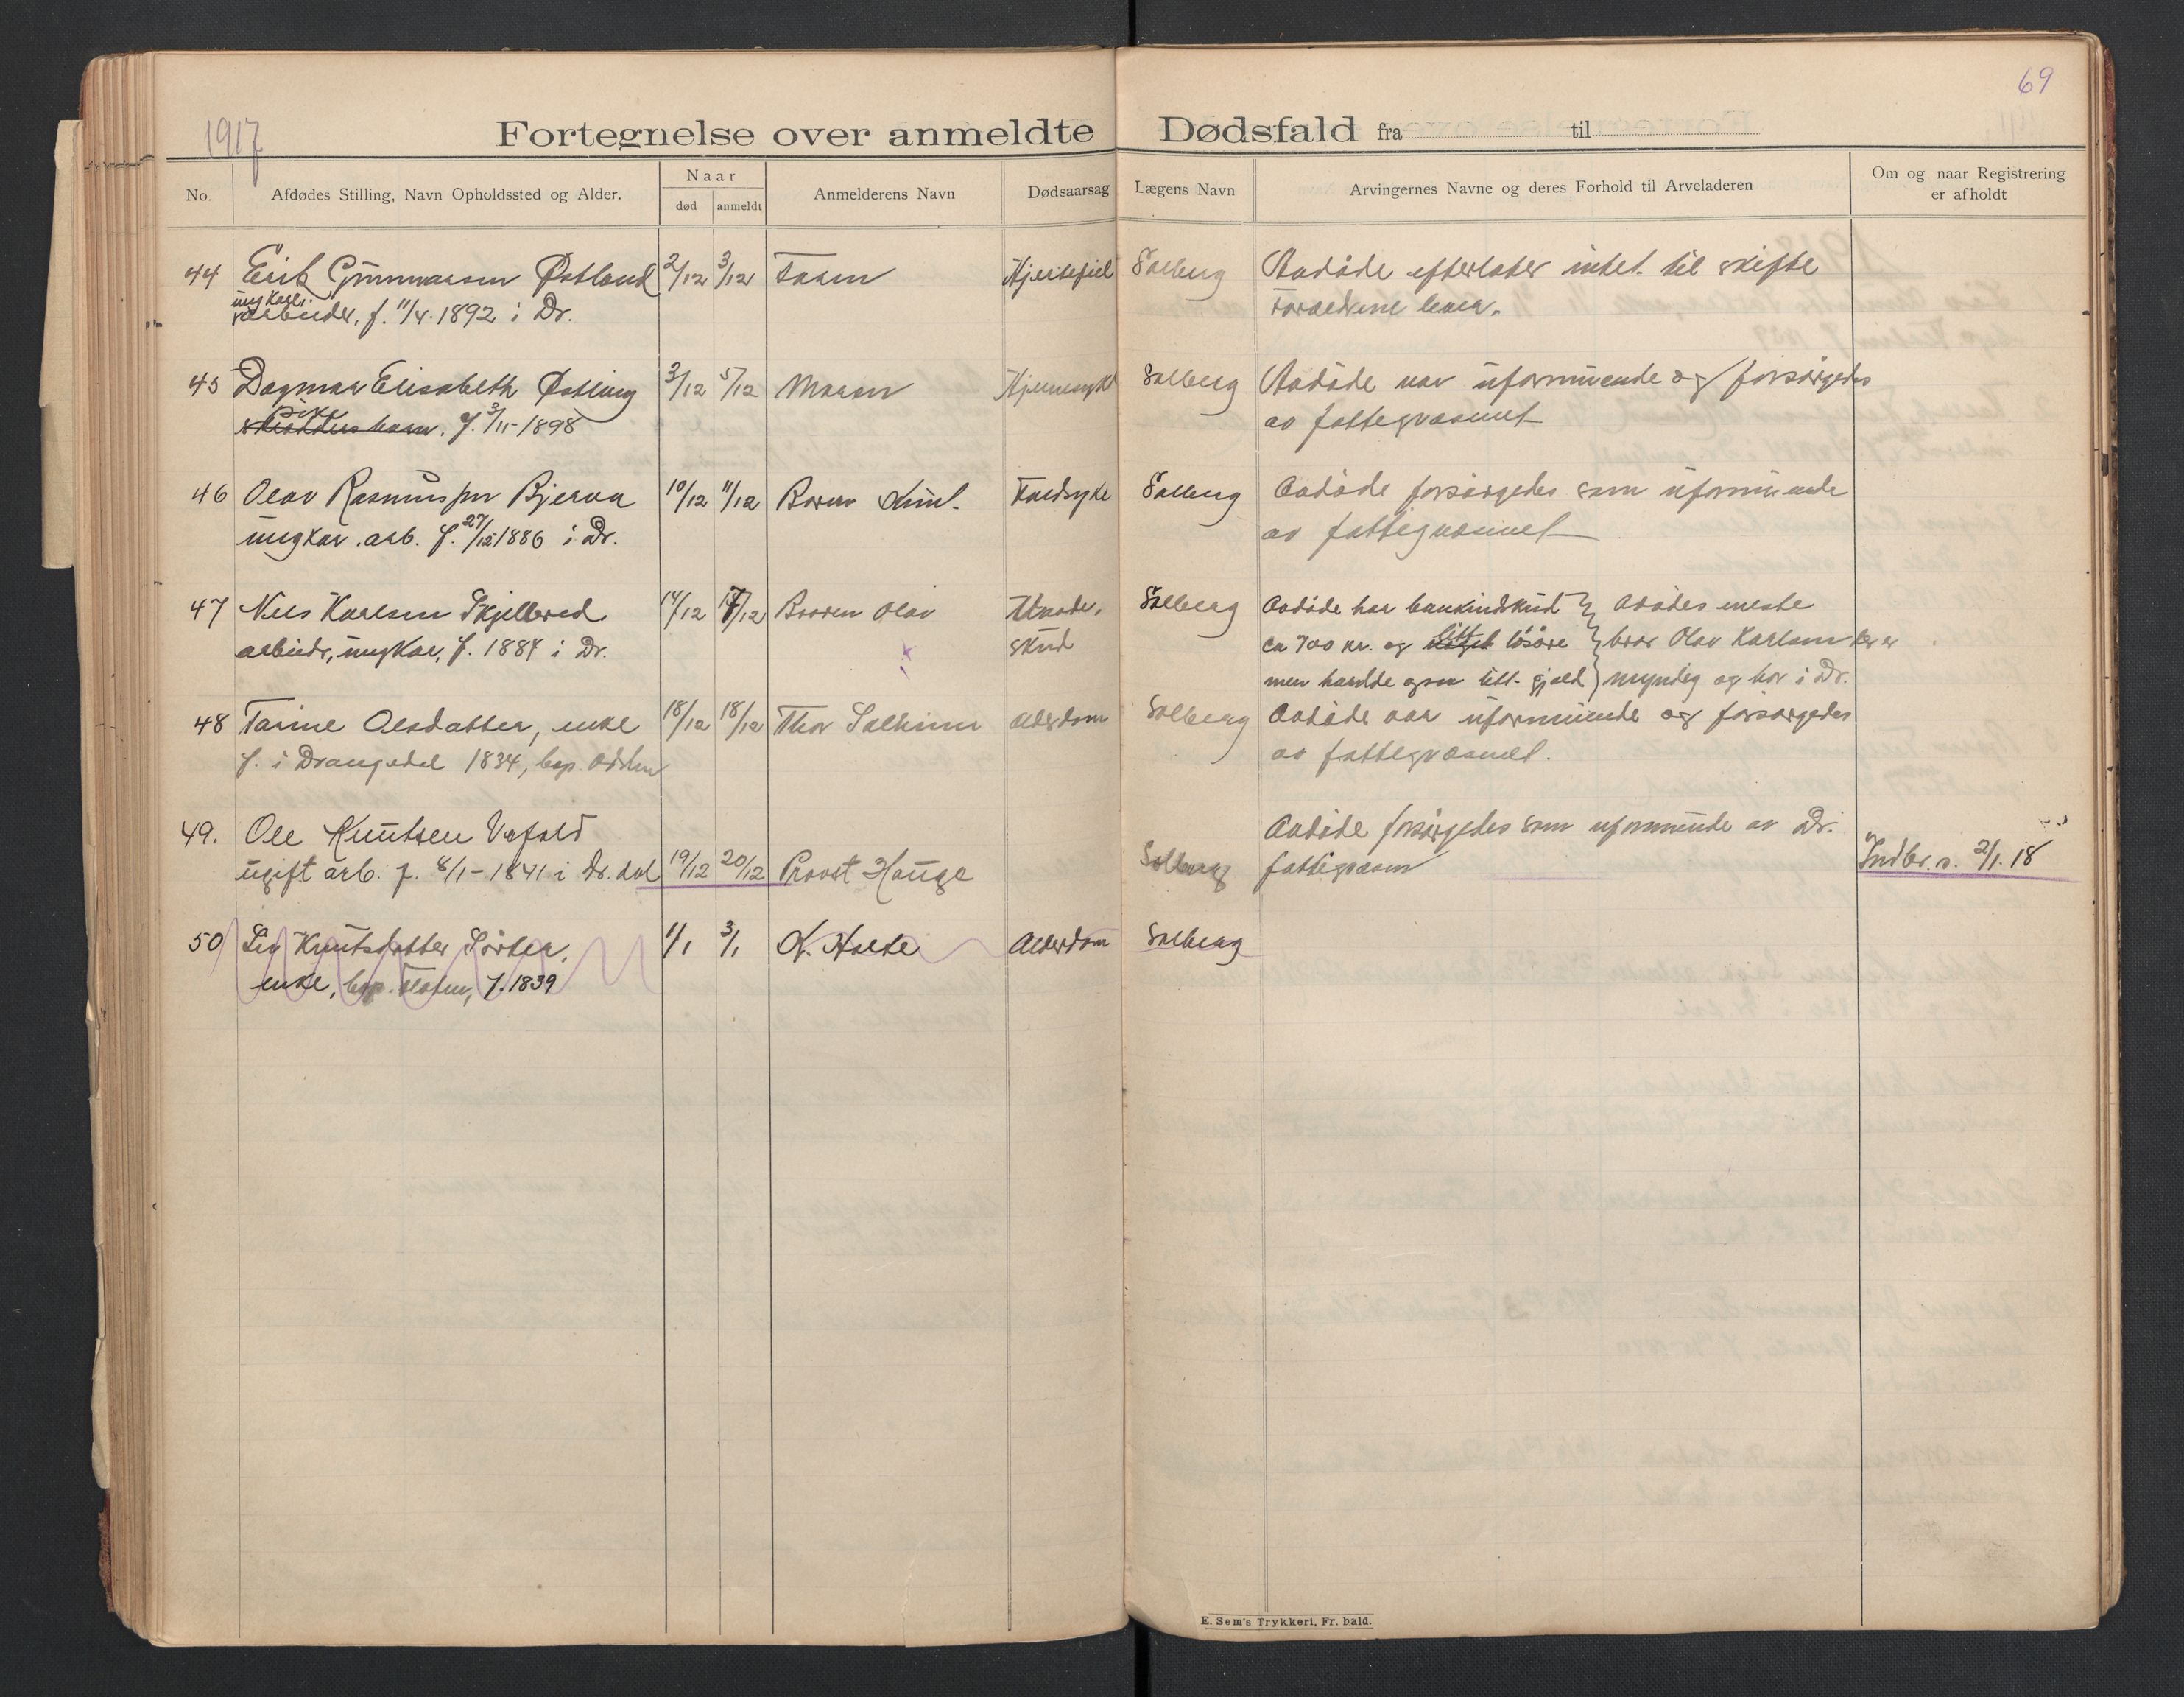 69
1917
Fortegnelse over anmeldte Dødsfald fra til
No.
Afdødes Stilling, Navn Opholdssted og Alder.
Naar
død
anmeldt
Anmelderens Navn
Dødsaarsag
Lægens Navn
Arvingernes Navne og deres Forhold til Arveladeren
Om og naar Registrering
er afholdt
44 Erik Gunnarsen Østlund 2/12 3/12 Faren Hjertefeil Solberg Avdøde efterlater intet til skifte
ungkar,
arbeider, f. 11/4. 1892 i Dr. Foraeldrene lever.
45 Dagmar Elisabeth Østling 3/12 5/12 Moren Hjernesyke Solberg Avdøde var uformuende og forsørgedes
pike
f. 3/11-1898 av fattigvæsenet
46 Olav Rasmussen Bjerva 10/12 11/12 Faldsyke Solberg Avdøde forsørgedes som uformuende
ungkar. arb. f. 27/12 1886 i Dr. av fattigvæsenet
47 Nils Karlsen Skjellbred 14/12 17/12 Broren Olav Vaade- Solberg Avdøde har bankindskud } Avdødes eneste
arbeider, ungkar, f. 1884 i Dr. skud ca 700 kr. og litt løsøre } bror Olav Karlsen der er
men havde ogsaa litt gjæld } myndig og bor i Dr.
48 Tarine Olsdatter, enke 18/12 18/12 Thor Solheim Alderdom Solberg Avdøde var uformuende og forsørgedes
f. i Drangedal 1834, bop. av fattigvæsenet.
49. Ole Knutsen Vefald Avdøde forsørgedes som uformuende av Dr.
ugift arb. f. 8/1-1841 i Dr.dal 19/12 20/12 Provst Hauge Solberg fattigvæsen Indber. s. 2/1. 18
50 Liv Knutsdatter 1/1 3/1 K. Holte Alderdom Solberg
enke, bop. f. 1839
E. Sem's Trykkeri, Fr. hald.